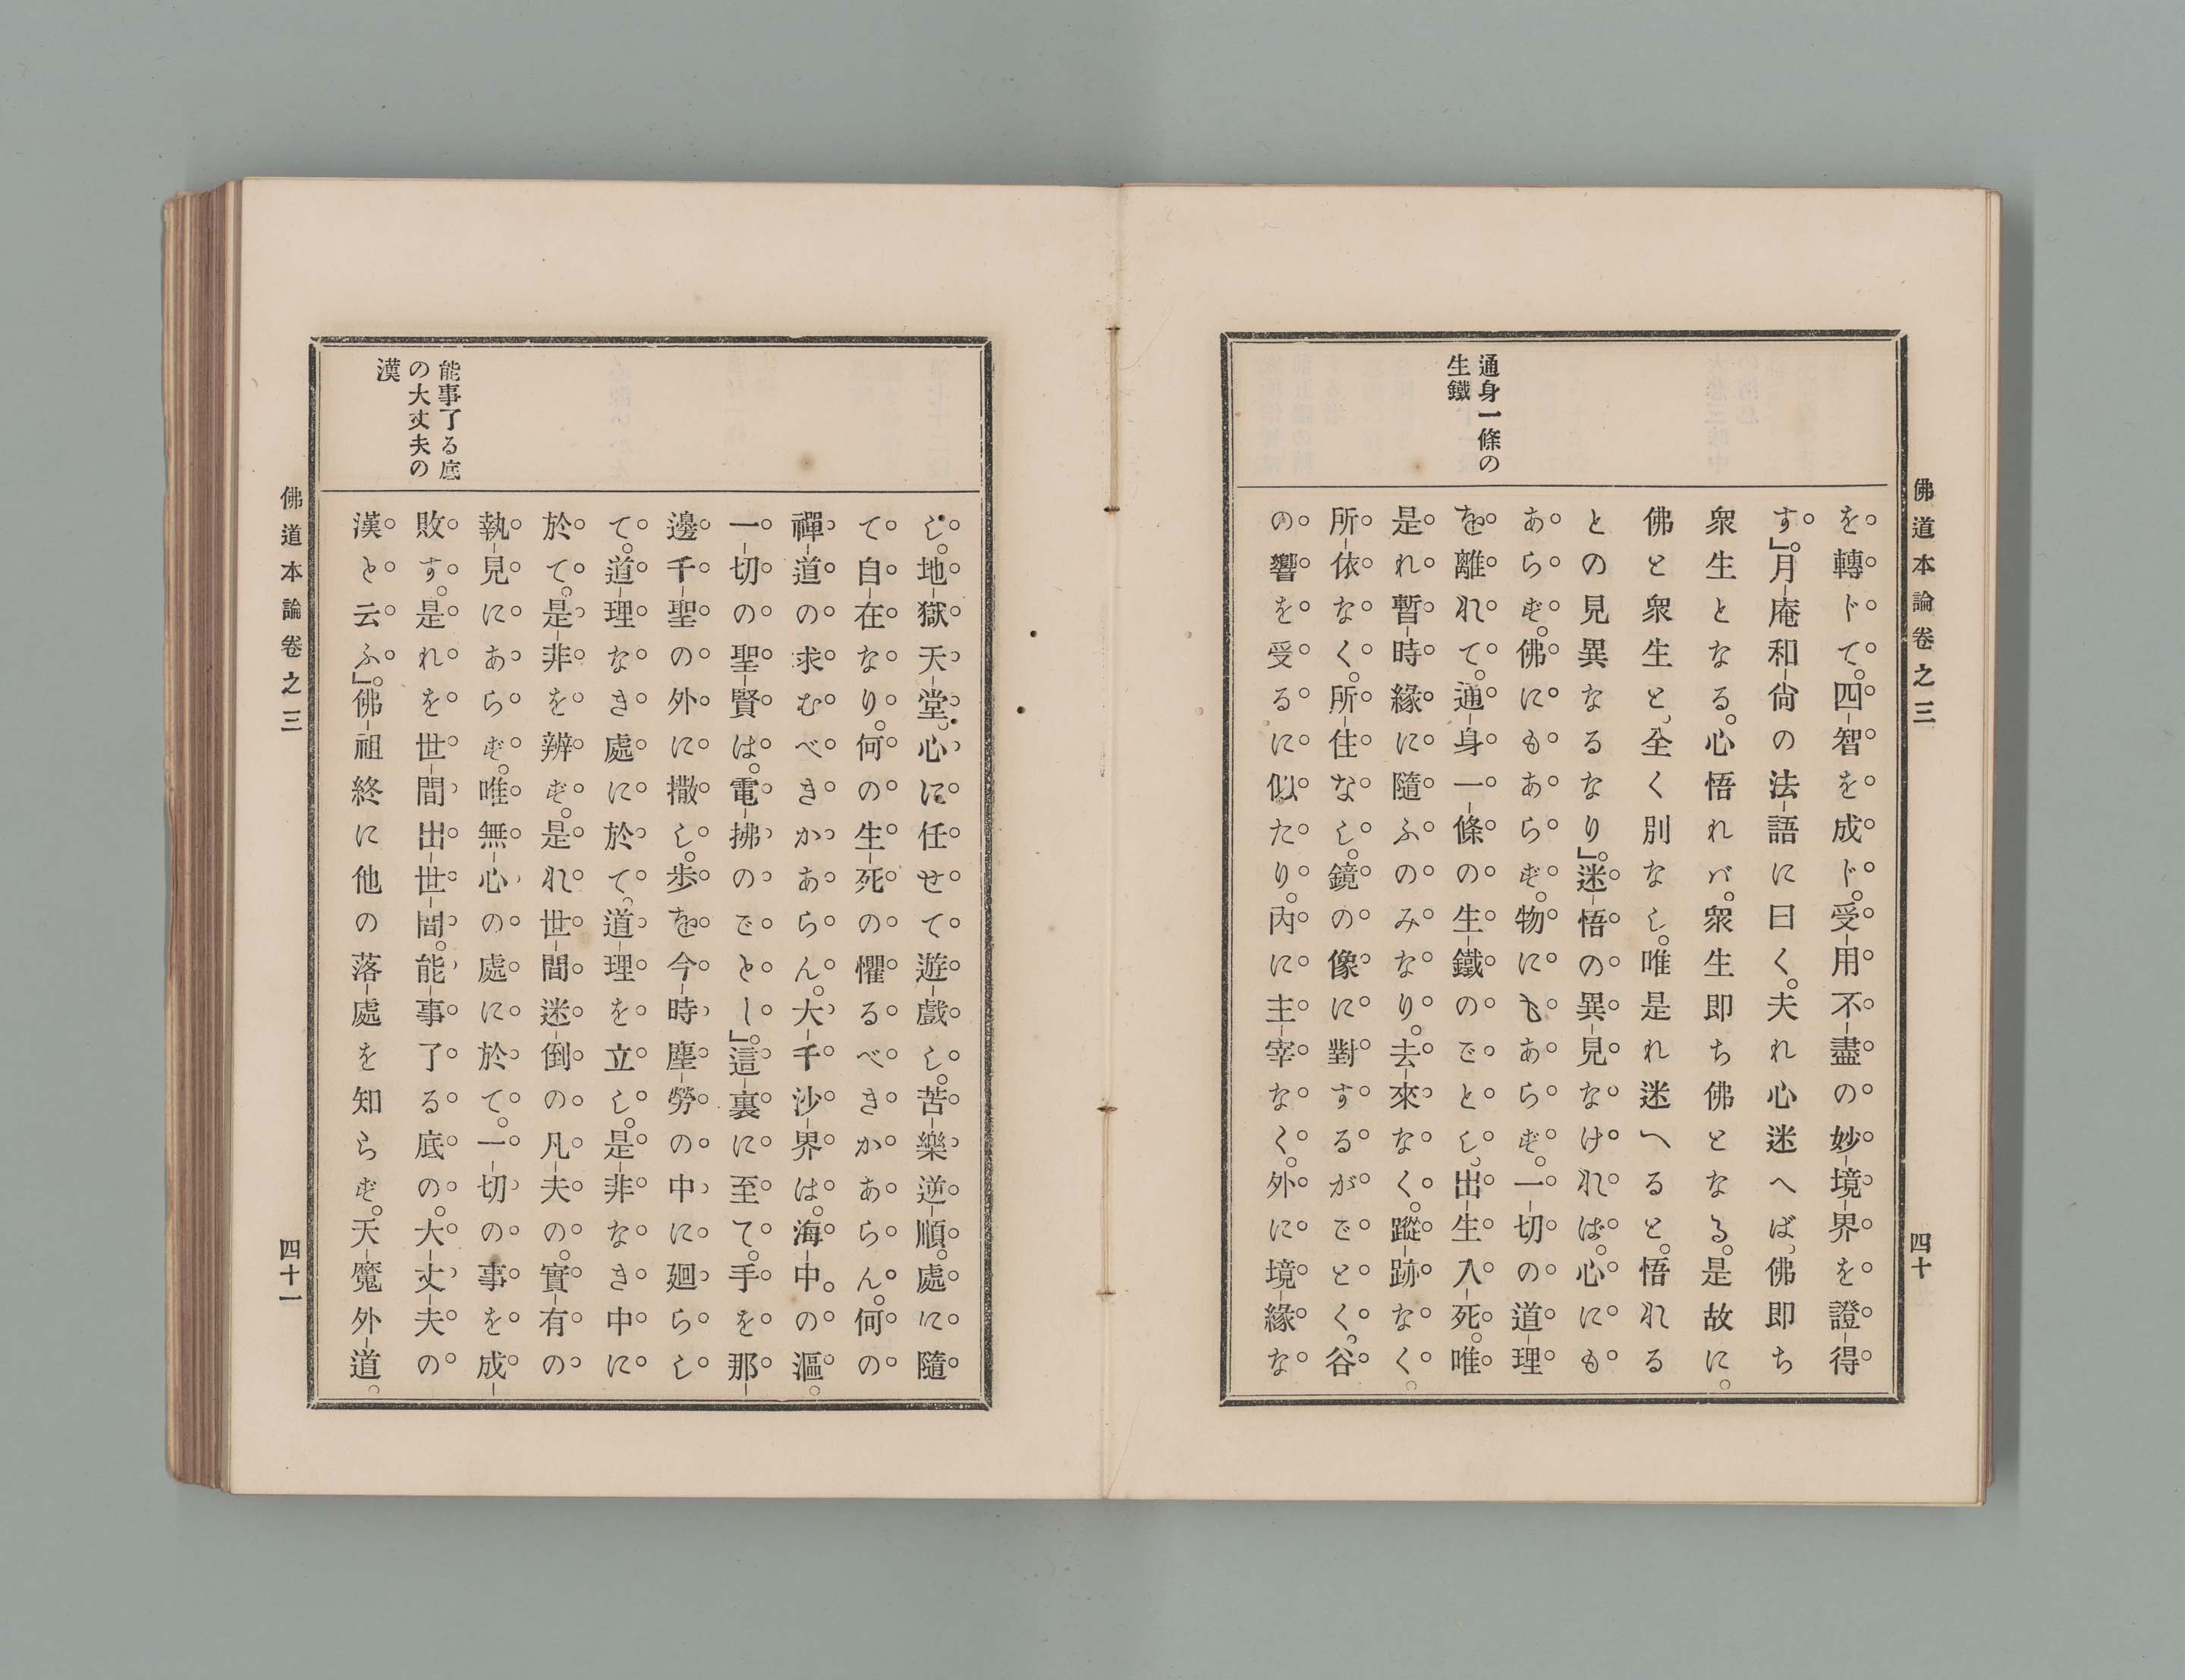 佛道本論卷之三
四十
通身一條の
生鐵
を轉ドて。四智を成ド。受用不盡の妙境界を證得
す」。月庵和尙の法語に曰く。夫れ心迷へば、佛即ち
衆生となる。心悟れバ。衆生即ち佛となる。是故に。
佛と衆生と、全く別なし。唯是れ迷へると。悟れる
との見異なるなり」。迷悟の異見なければ。心にも
あらず。佛にもあらず。物にもあらず。一切の道理
を離れて。通身一條の生鐵のごとし。出生入死。唯
是れ暫時緣に隨ふのみなり。去來なく。蹤跡なく。
所依なく。所住なし。鏡の像に對するがごとく。谷
の響を受るに似たり。內に主宰なく。外に境緣な
し。地獄天堂。心に任せて遊戲し。苦樂逆順。處に隨
て自在なり。何の生死の懼るべきかあらん。何の
禪道の求むべきかあらん。大千沙界は。海中。の漚。
一切の聖賢は。電拂のごとし」。這裏に至て。手を那
邊千聖の外に撒し。步を今時塵勞の中に廻らし
て。道理なき處に於て。道理を立し。是非なき中に
於て。是非を辨ず。是れ世間迷倒の凡夫の。實有の
執見にあらず。唯無心の處に於て。一切の事を成
敗す。是れを世間出世間。能事了る底の。大丈夫の
漢と云ふ」。佛祖終に他の落處を知らず。天魔外道。
能事了る底
の大丈夫の
漢
佛道本論卷之三
四十一